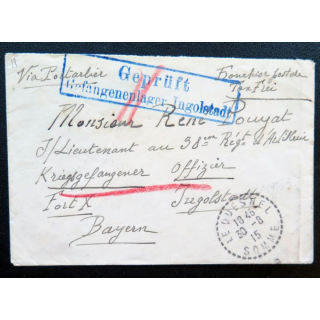 Via Pontarlier
Franchise postale
Taxfrei
Geprüft
Gefangenenlager Ingolstadt
Monsieur René Pouyat
S/Lieutenant au 38ème Régt d'Artillerie
Kriegsgefangener Offizier
Fort X Ingolstadt
Bayern
LE QUESNEL
18 45
30 -8
15
SOMME